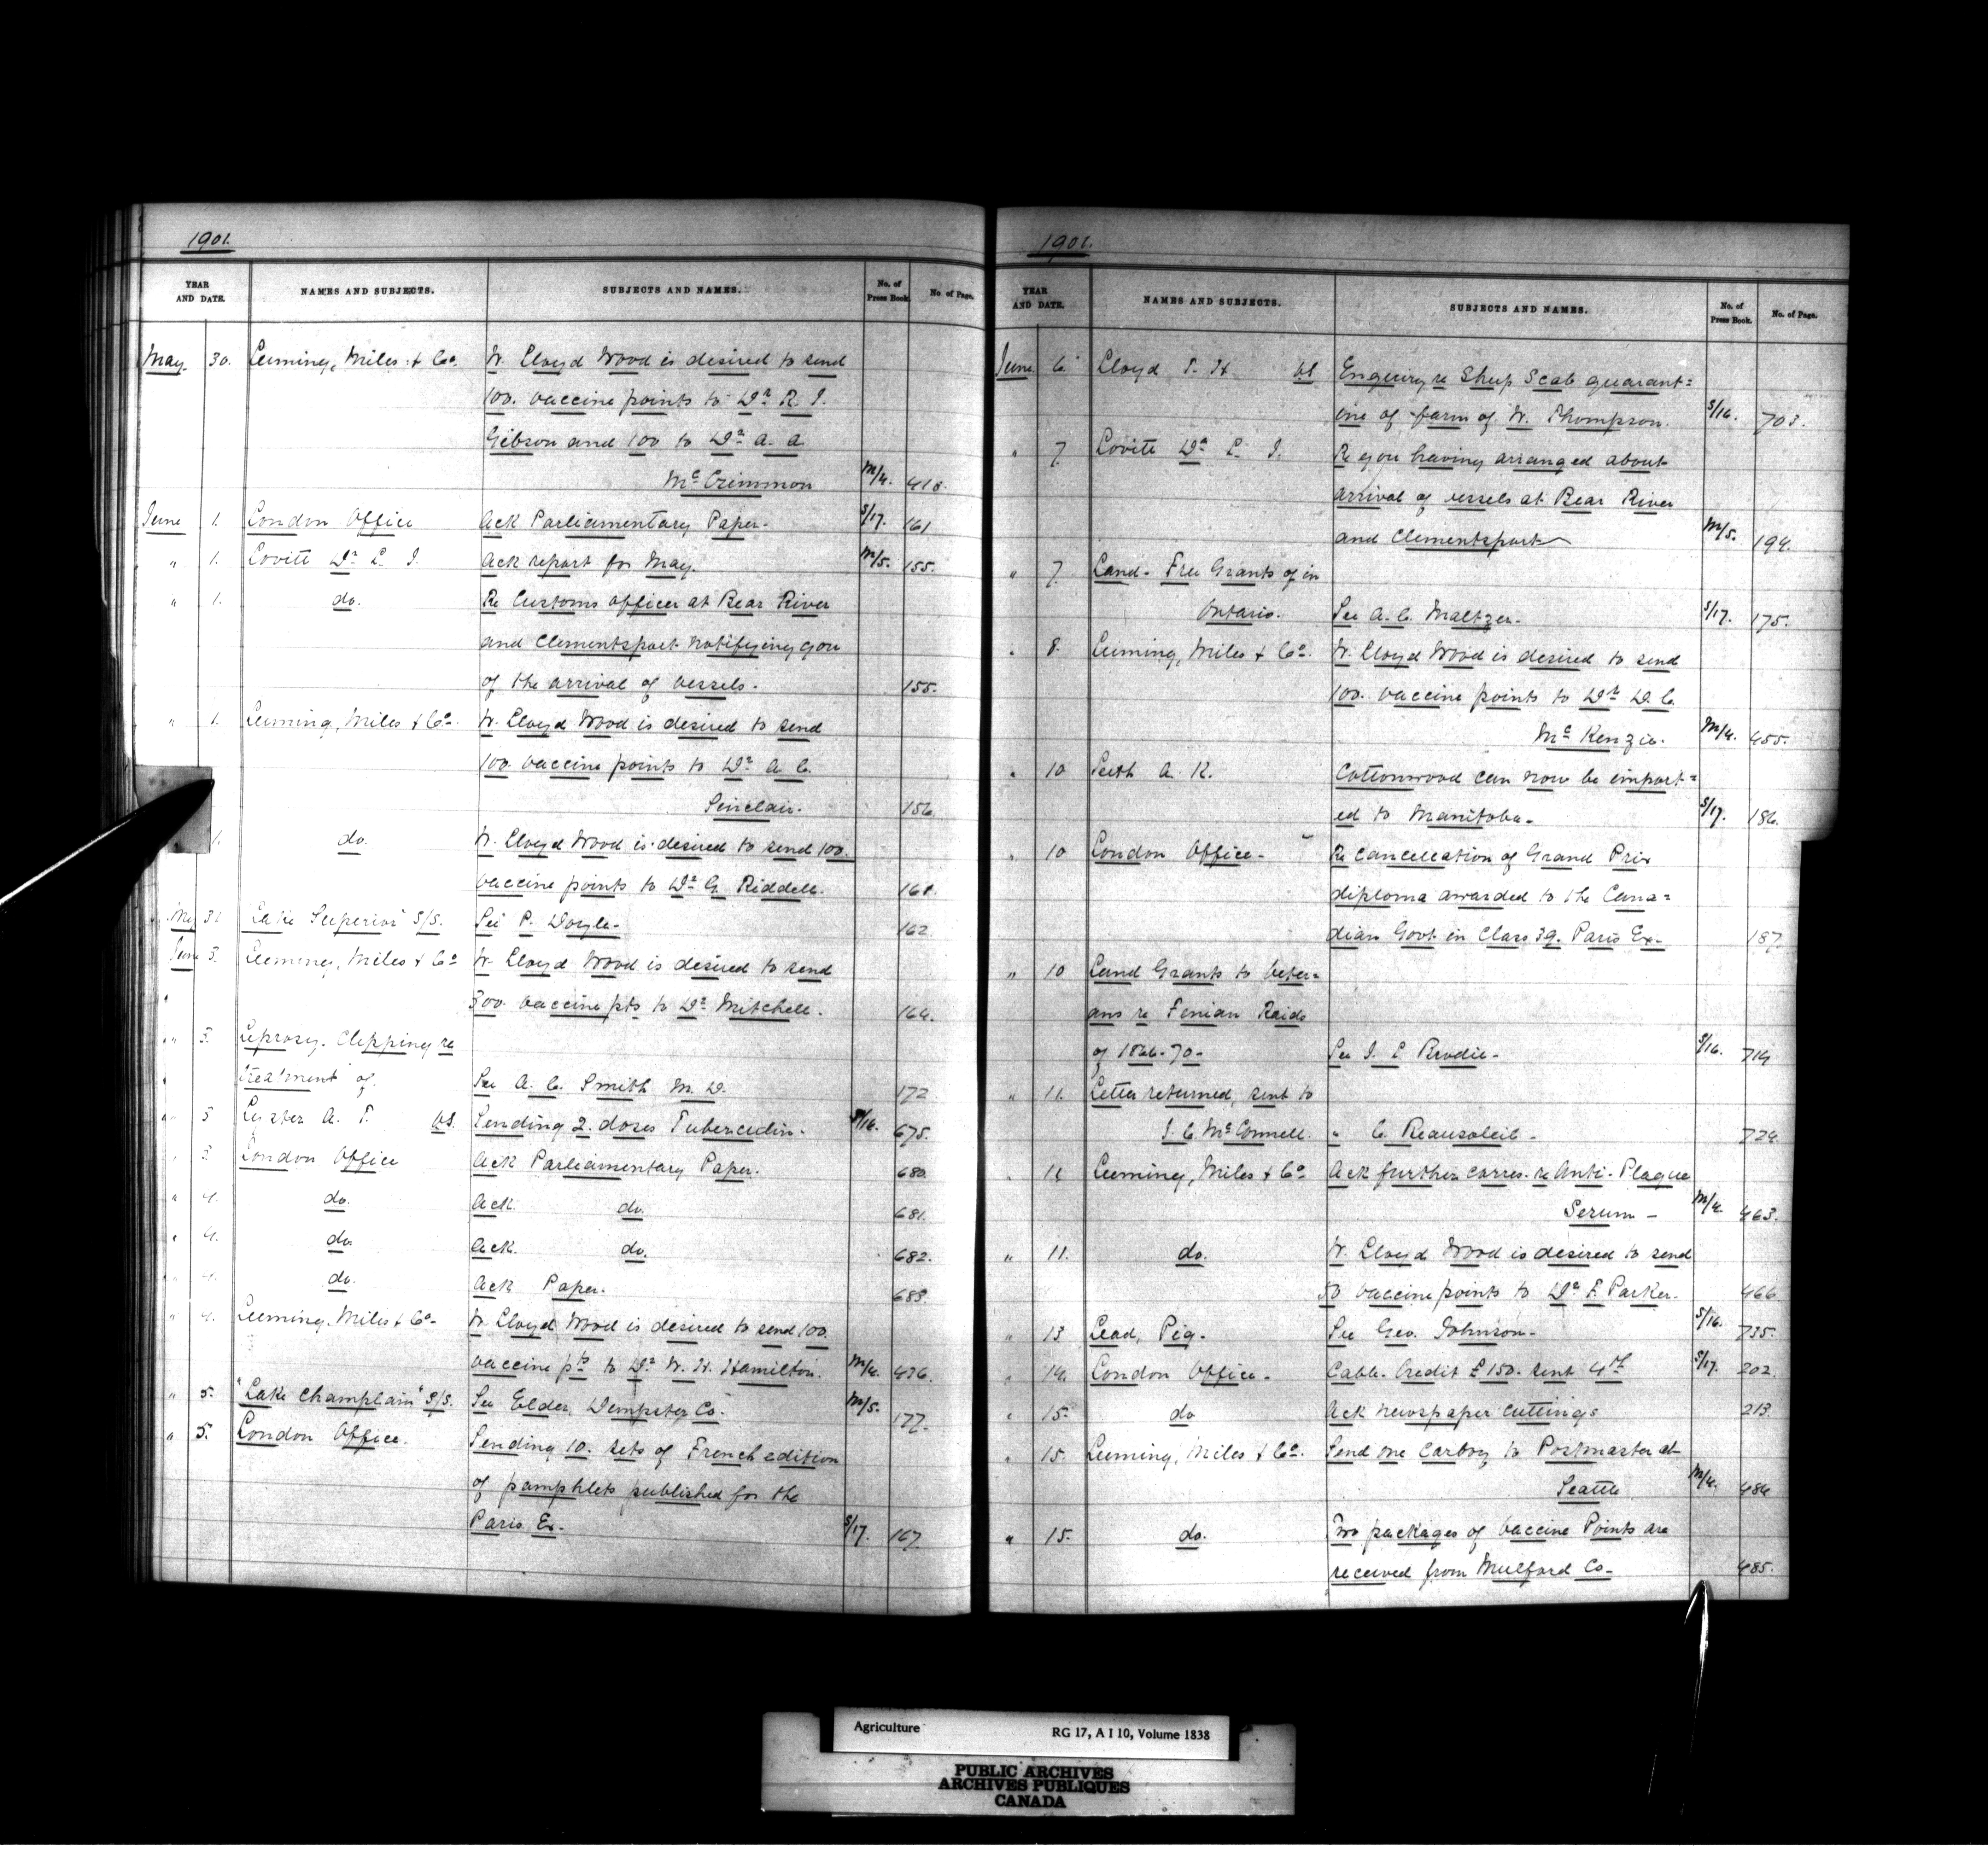 1901.
YEAR AND DATE. NAMES AND SUBJECTS. SUBJECTS AND NAMES. No. of Press Book. No. of Page.
May 30. Leeming, Miles & Co. W. Lloyd Wood is desired to send
100. vaccine points to Dr R. J.
Gibson and 100 to Dr A. A.
McCrimmon M/4. 418.
June 1. London Office Ack Parliamentary Paper. S/17. 161
" 1. Lovitt Dr L. J. Ack report for May. M/5. 155.
" 1. do. Re Customs officer at Bear River
and Clementsport notifying you
of the arrival of vessels. 155.
" 1. Leeming, Miles & Co. W. Lloyd Wood is desired to send
100. vaccine points to Dr A. C.
Sinclair. 156.
1. do. W. Lloyd Wood is desired to send 100.
vaccine points to Dr G. Riddell. 161.
May 31. Lake Superior S/S. See P. Doyle. 162.
June 3. Leeming, Miles & Co W. Lloyd Wood is desired to send
300. vaccine pts to Dr Mitchell. 164.
" 3. Leprosy. Clipping re
treatment of. See A. C. Smith M. D. 172
" 5 A. T. VS. Sending 2. doses Tuberculin. S/16. 675.
" 3. London Office Ack Parliamentary Paper. 680.
" 4. do. Ack. do. 681.
" 4. do. Ack. do. 682.
" 4. do. Ack Paper. 683
" 4. Leeming, Miles & Co. W. Lloyd Wood is desired to send 100.
vaccine pts to Dr W. H. Hamilton. M/4. 436.
" 5. "Lake Champlain" S/S. See Elder, Dempster Co. M/5. 177.
" 5. London Office. Sending 10. sets of French edition
of pamphlets published for the
Paris Ex. S/17. 167.
1901.
YEAR AND DATE. NAMES AND SUBJECTS. SUBJECTS AND NAMES. No. of Press Book. No. of Page.
June 6 Lloyd T. H VS Enquiry re Sheep Scab quarant=
ine of farm of W. Thompson. S/16. 703.
" 7. Lovitt Dr L. J. Re you having arranged about
arrival of vessels at Bear River
and Clementsport M/5. 194.
" 7. Land - Free Grants of in
Ontario. See A. C. Maltzer. S/17. 175.
" 8. Leeming, Miles & Co. W. Lloyd Wood is desired to send
100. vaccine points to Dr D. C.
McKenzie. M/4. 455.
" 10 Leith A. K. Cottonwood can now be import=
ed to Manitoba. S/17. 186.
" 10 London Office - Re cancellation of Grand Prix
diploma awarded to the Cana=
dian Govt in Class 39. Paris Ex. 187.
" 10 Land Grants to veter=
ans re Fenian Raids
of 1866-70 - See J. L Brodie - S/16. 714
" 11. Letter returned, sent to
J. C. McConnell. " C. Beausoleil - 724.
" 11 Leeming, Miles & Co Ack further corres. re Anti-Plague
Serum - M/4. 463.
" 11. do. W. Lloyd Wood is desired to send
50 vaccine points to Dr F. Parker. 466.
" 13 Lead, Pig - See Geo. Johnson - S/16. 735.
" 14. London Office - Cable Credit £150. sent 4th S/17. 202.
" 15. do Ack newspaper cuttings 213.
" 15. Leeming, Miles & Co. Send one carboy to Postmaster at
Seattle M/4. 484
" 15. do. Two packages of Vaccine Points are
received from Mulford Co - 485.
Agriculture RG 17, A I 10, Volume 1838
PUBLIC ARCHIVES
ARCHIVES PUBLIQUES
CANADA